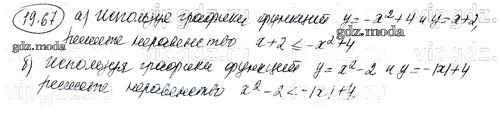 19.67 а) Используя графики функций y=-x²+4 и y=x+2,
решите неравенство x+2≤-x²+4
gdz.moda
gdz.moda
б) Используя графики функций y=x²-2 и y=-|x|+4
решите неравенство x²-2<-|x|+4.
gdz.moda